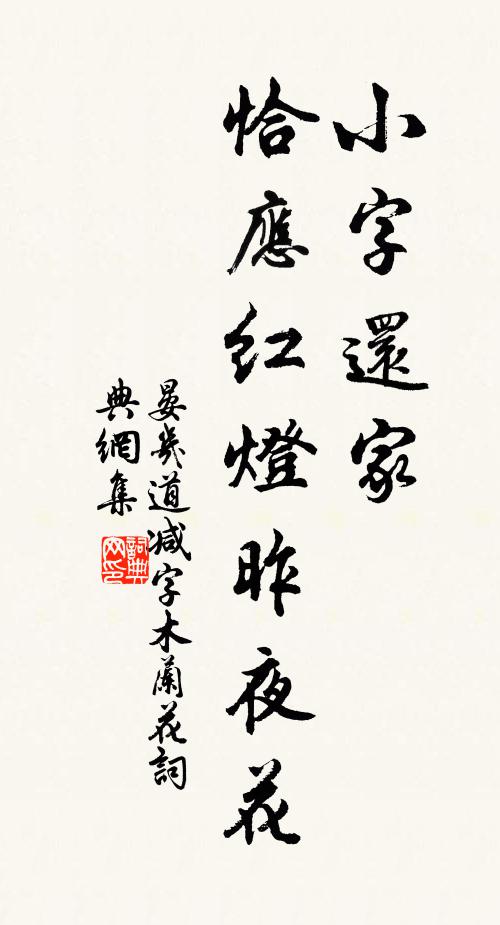 小字還家
恰應紅燈昨夜花
晏幾道減字木蘭花詞
典網集
詞典
网印